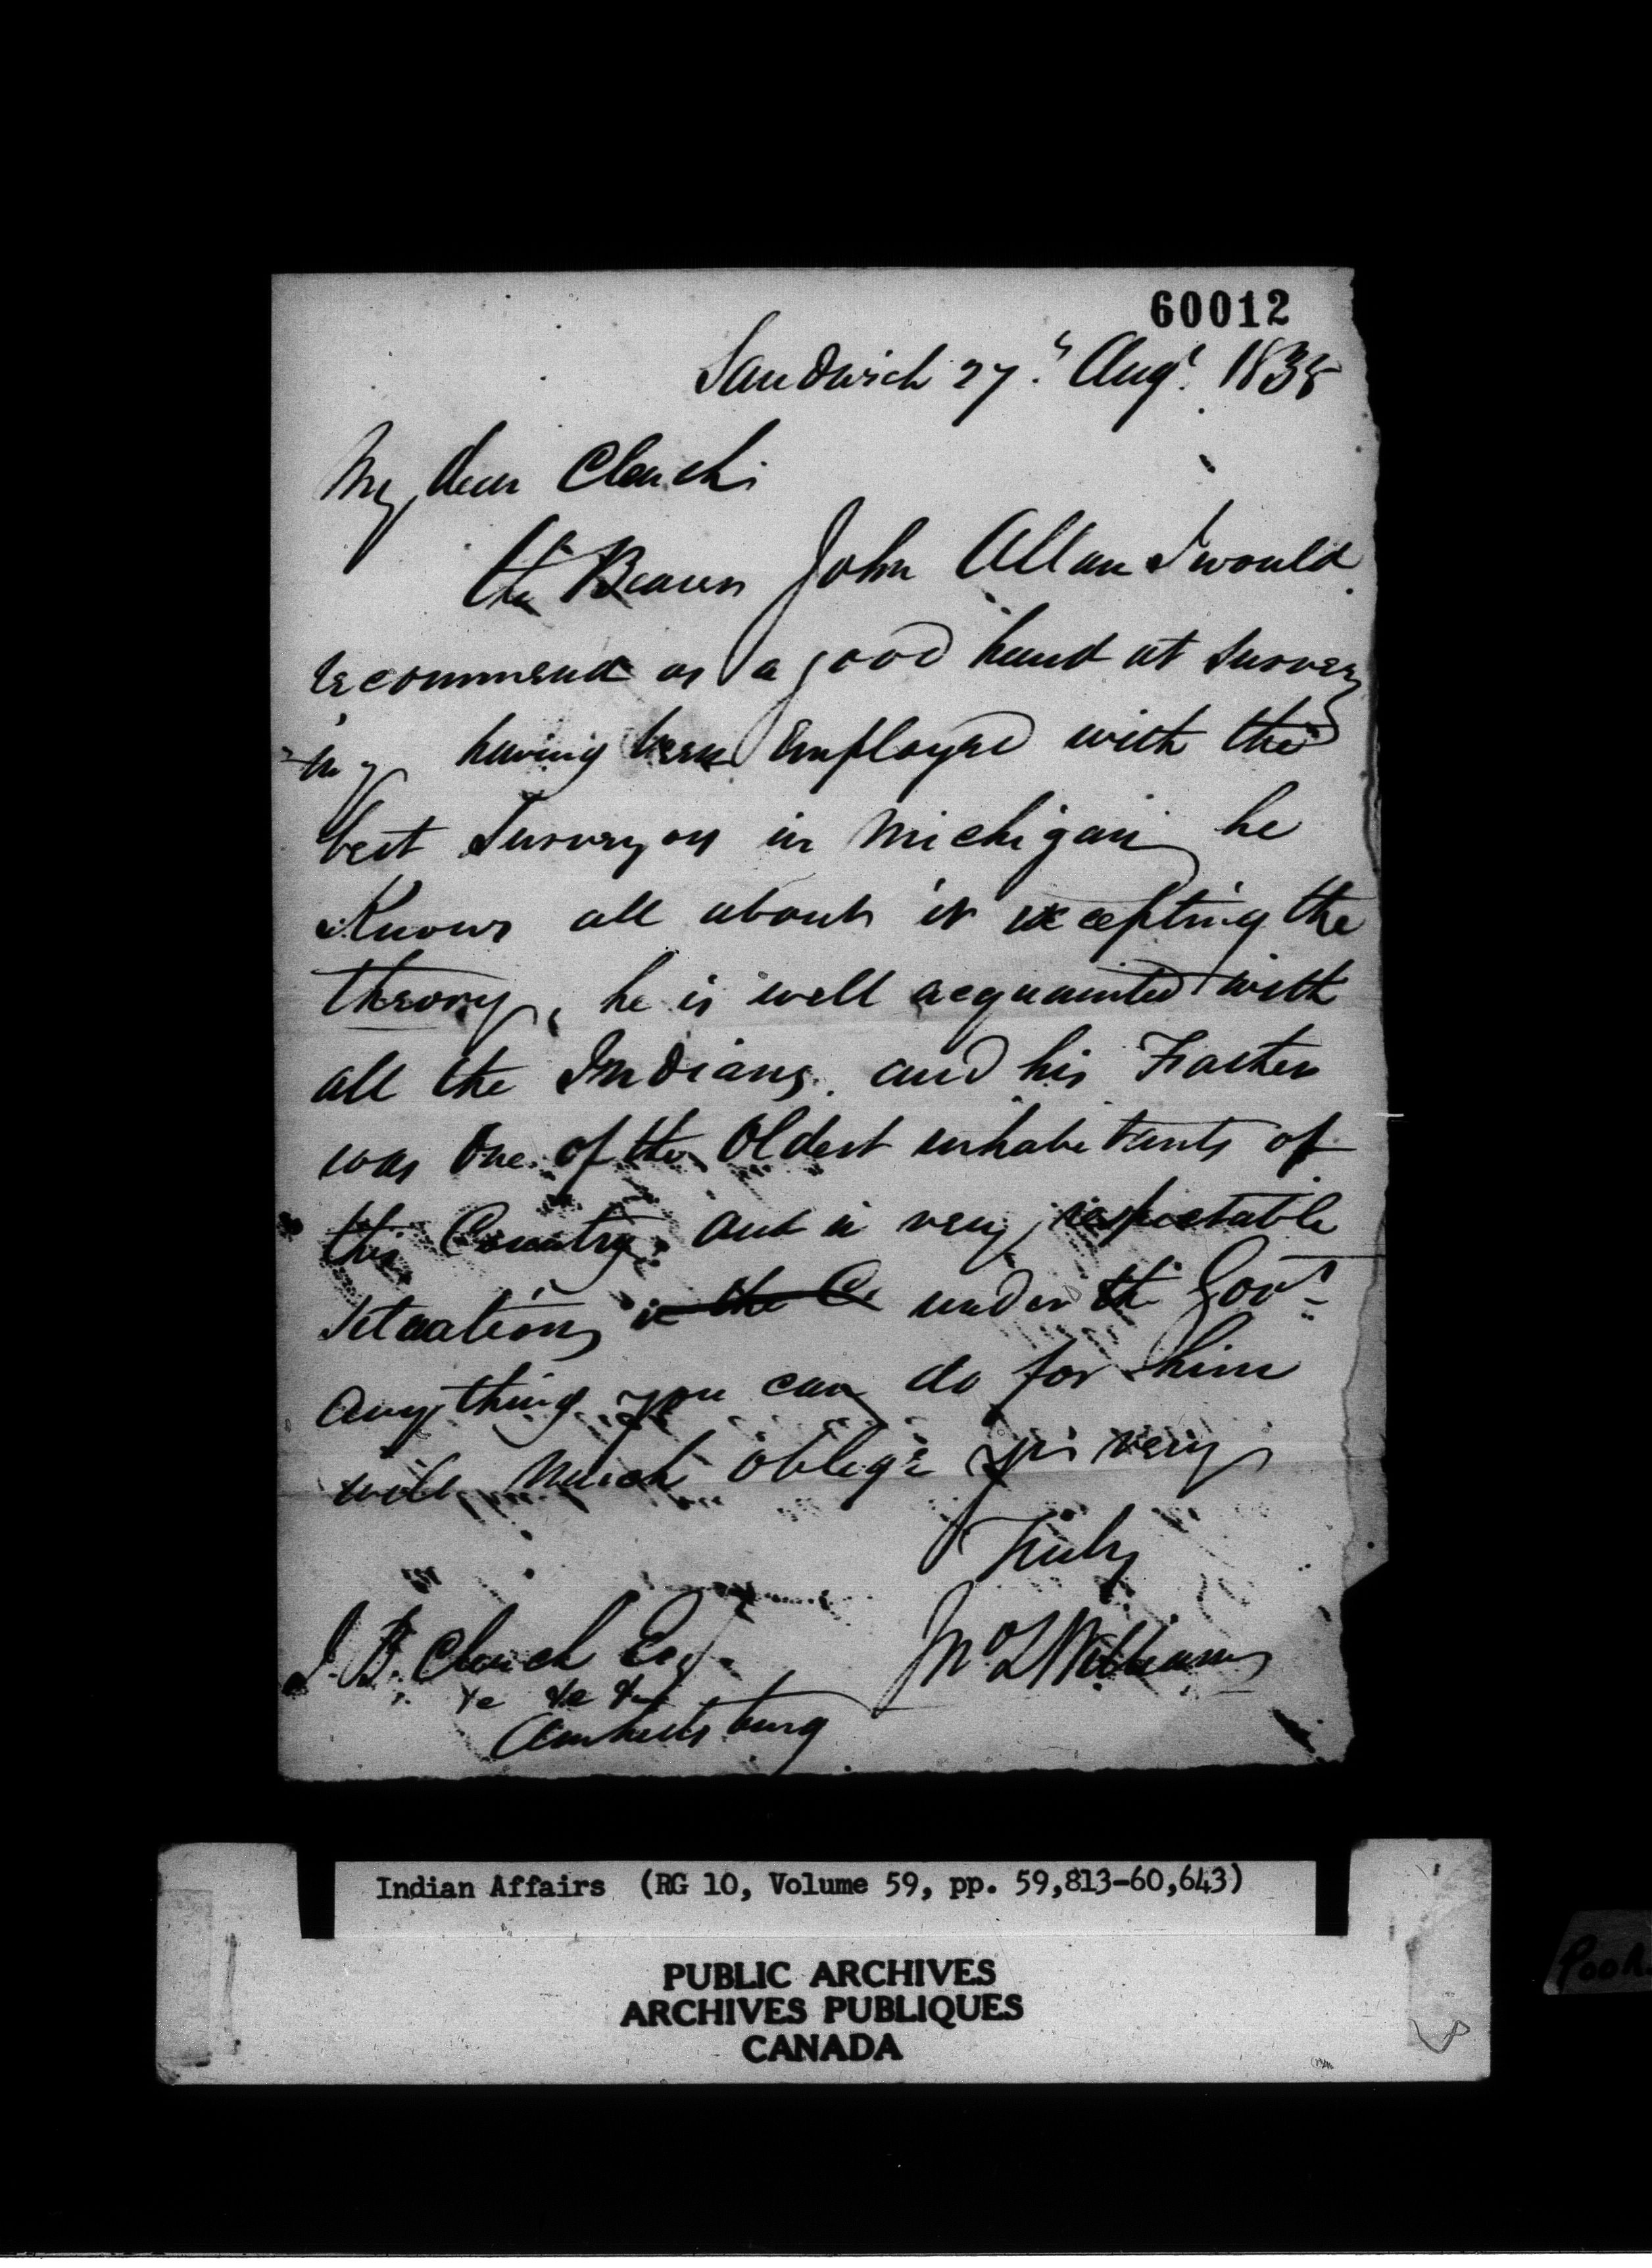 60012
Sandwich 27.th Augt. 1835
My dear Clench
The Bearer John Allan I would
recommend as a good hand at survey
ing having been Employed with the
best Surveyors in Michigan he
Knows all about it excepting the
theory, he is well acquainted with
all the Indians. and his Father
was One of the Oldest inhabitants of
this Country. and in very respectable
situations in the Co under the Govt.
anything you can do for him
will much oblige yrs very
Truly
J. B. Clench Esq.
&c &c &c
Amherstburg
Jno Williams
Indian Affairs (RG 10, Volume 59, pp. 59,813-60,643)
PUBLIC ARCHIVES
ARCHIVES PUBLIQUES
CANADA